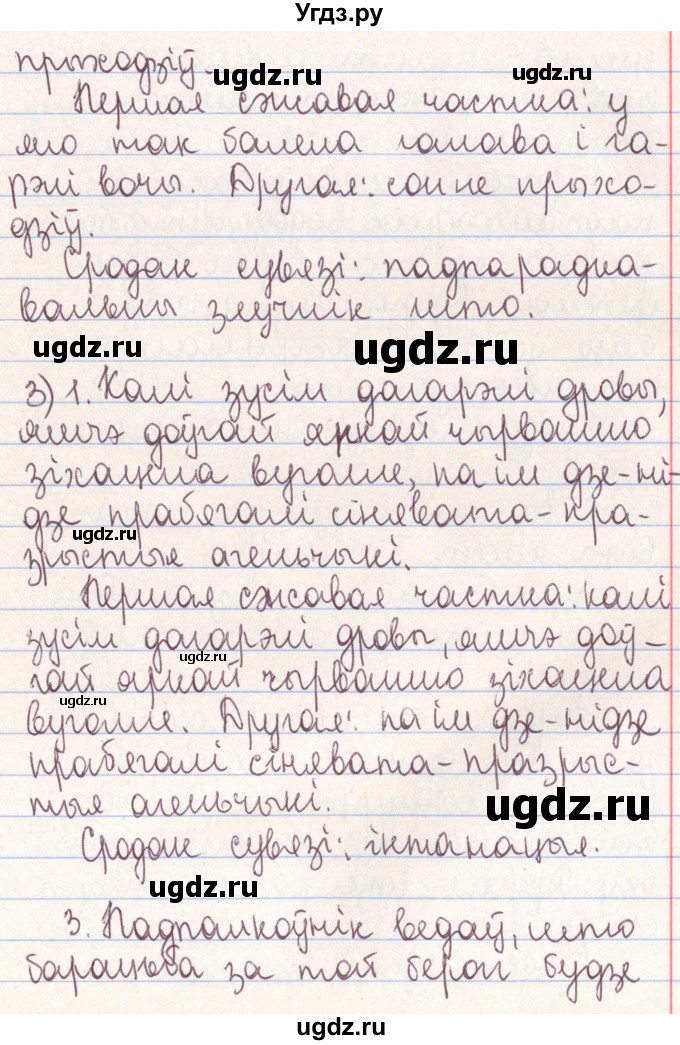 Угдз.ру
прыходзіў.
ugdz.ru
ugdz.ru
Першая сэнсавая частка: у
яго так балела галава і га-
рэлі вочы. Другая: сон не прыхо-
дзіў.
Сродак сувязі: падпарадка-
вальны злучнік што.
ugdz.ru
ugdz.ru
3) 1. Калі зусім дагарэлі дровы,
яшчэ доўгай яркай чырванню
зіхацела вуголле, па ім дзе-ні-
дзе прабягалі сінявата-пра-
ugdz.ru
зрыстыя агеньчыкі.
Першая сэнсавая частка: калі
зусім дагарэлі дровы, яшчэ доў-
ugdz.ru
гай яркай чырванню зіхацела
ugdz.ru
вуголле. Другая: па ім дзе-нідзе
прабягалі сінявата-празрыс-
тыя агеньчыкі.
ugdz.ru
Сродак сувязі: інтанацыя.
ugdz.ru
3. Падпалкоўнік ведаў, што
барацьба за той бераг будзе
ugdz.ru